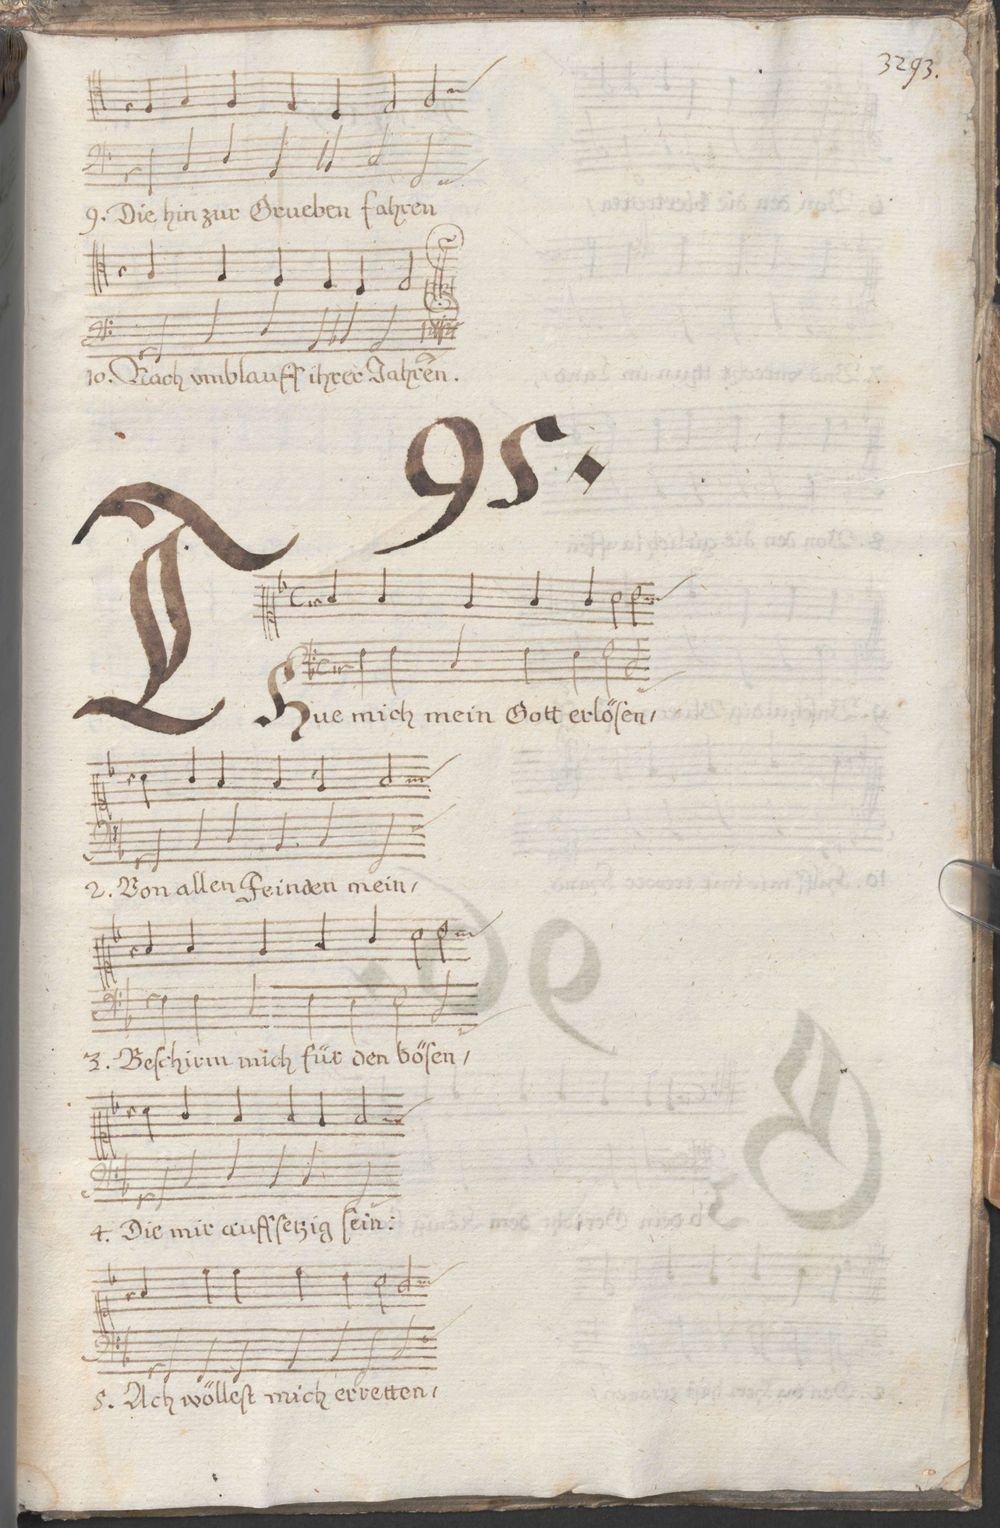 3293.
9. Die hin zur Grueben fahren
10. Nach vmblauff ihrer Jahren.
95.
THue mich mein Gott erlösen,
2. Von allen Feinden mein,
3. Beschirm mich für den bösen,
4. Die mir auffsetzig sein:
5. Ach wöllest mich erretten,